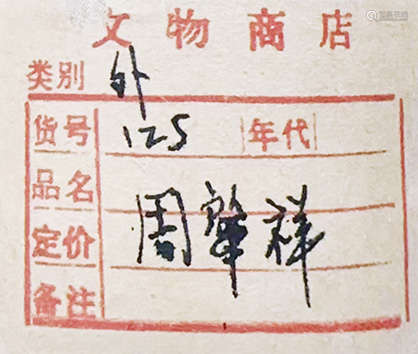 文物商店
类别 外
货号 125 年代
品名
周肇祥
定价
备注